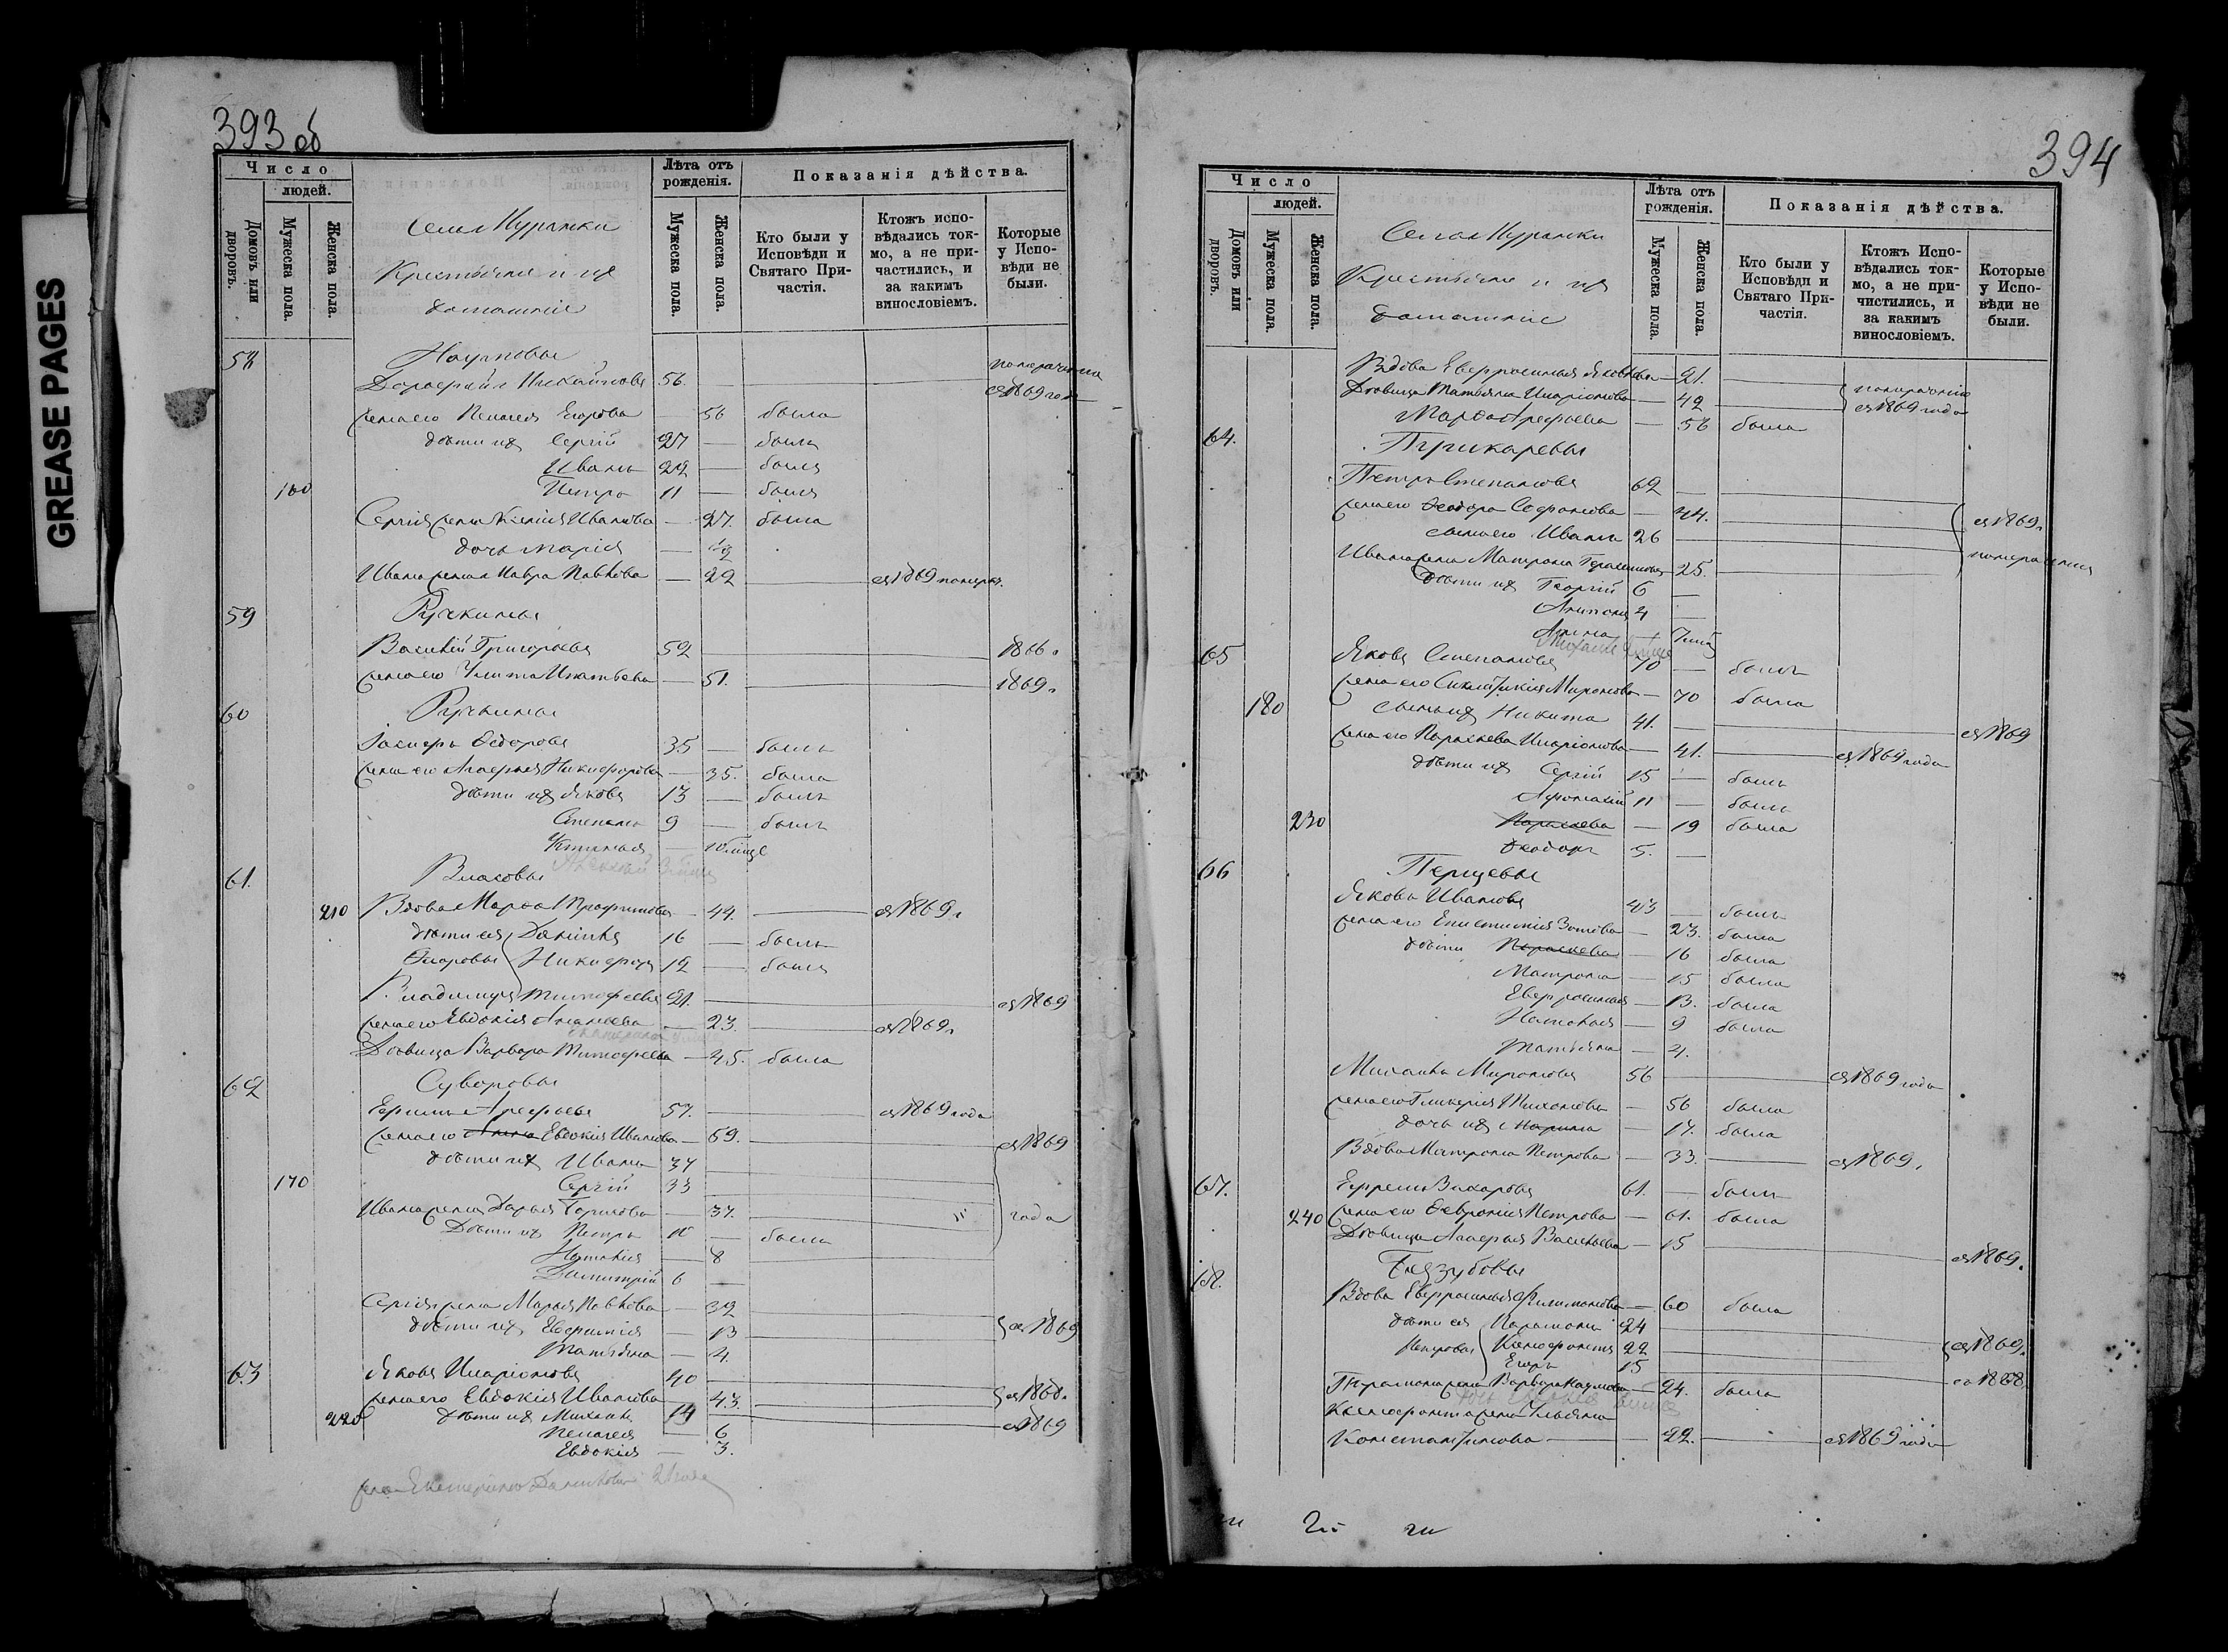 GREASE PAGES
393 об
Число
людей.
Домовъ или дворовъ.
Мужеска пола.
Женска пола.
Лѣта отъ рожденія.
Мужеска пола.
Женска пола.
Показанія дѣйства.
Кто были у Исповѣди и Святаго Причастія.
Ктожъ исповѣдались токмо, а не причастились, и за какимъ винословіемъ.
Которые у Исповѣди не были.
Крестьяне и ихъ
домашніе
58 Наумовы
56. съ 1869 года
жена его Пелагея Егорова — 56 была
дѣти ихъ Сергій 27 — былъ
Иванъ 22 — былъ
160 Петръ 11 — былъ
Сергія жена Ксенія Иванова — 27. была
дочь Марія —
Ивана жена Павлова — 22 съ 1869
59
Василій Григорьевъ 52 1866.
жена его Улита Игнатьева — 51. 1869.
60
Ѳедоровъ 35 — былъ
жена его Агаѳья Никифорова — 35. была
дѣти ихъ Яковъ 13 — былъ
Степанъ 9 — былъ
61. Власовы
210 Вдова Марѳа — 44. съ 1869.
дѣти ея Даніилъ 16 — былъ
Никифоръ 12 — былъ
Владимиръ Тимофеевъ 21. съ 1869
жена его Евдокія Ананьева — 23. съ 1869.
Дѣвица Варвара Тимофеева — 45. была
62 Суворовы
Арефьевъ 57. съ 1869 года
жена его Евдокія Иванова — 59. съ 1869
дѣти ихъ Иванъ 37
170 Сергій 33
Ивана жена Дарья — 37. года
Дѣти ихъ Петръ 10 — былъ
Наталія — 8
Димитрій 6 —
Сергія жена Марья Павлова — 32 съ 1869
дѣти ихъ Евфимія — 13
Татьяна — 4.
63 Яковъ Иларіоновъ 40
жена его Евдокія Иванова — 43. съ 1868.
220 дѣти ихъ Михаилъ 14 съ 1869
Пелагея — 6
Евдокія — 3.
жена Екатерина Даниловна 21 года
394
Число
людей.
Домовъ или дворовъ.
Мужеска пола.
Женска пола.
Лѣта отъ рожденія.
Мужеска пола.
Женска пола.
Показанія дѣйства.
Кто были у Исповѣди и Святаго Причастія.
Ктожъ Исповѣдались токмо, а не причистились, и за какимъ винословіемъ.
Которые у Исповѣди не были.
Крестьяне и ихъ
домашніе
Вдова Евфросинья Яковлева — 21.
Дѣвица Татьяна Иларіонова — 42 съ 1869 года
Марѳа Арефьева — 56 была
64.
Петръ Степановъ 62 —
жена его Ѳеодора Софонова — 44. съ 1869.
сынъ его Иванъ 26
Ивана жена Матрона Герасимова — 25.
дѣти ихъ Георгій 6 —
4 —
65 Яковъ Степановъ 70 — былъ
жена его Миронова — 70 была
180 сынъ ихъ Никита 41. съ 1869
жена его Параскева Иларіонова — 41. съ 1869 года
дѣти ихъ Сергій 15 — былъ
Афонасій 11 — былъ
230 Параскева — 19 была
Ѳеодоръ 5. —
66 Перцевы
Яковъ Ивановъ 43 — былъ
жена его Епистимія Зотова — 23. была
дѣти Параскева — 16 была
Матрона — 15 была
Евфросинья — 13. была
Наталья — 9 была
Татьяна — 4.
Михаилъ Мироновъ 56 съ 1869 года
жена его Гликерія Тихонова — 56 была
дочь ихъ Марина — 17. была
Вдова Матрона Петрова — 33. съ 1869.
67. Ефремъ Захаровъ 61. — былъ
240 жена его Ѳевронія Петрова — 61. была
Дѣвица Агаѳья Васильева — 15 съ 1869.
68. Беззубовы
Вдова Евфросинья Филимонова — 60 была
дѣти ея Парамонъ 24
Петровы Ксенофонтъ 22 съ 1869.
Егоръ 15 съ 1868
Парамона жена Варвара Наумова — 24. была
Ксенофонта жена Ульяна
Константинова — 22. съ 1869 года